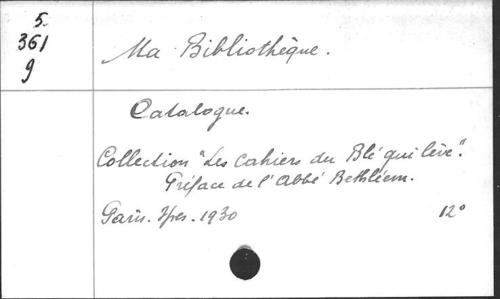 5.
361
g
Ma Bibliothèque.
Catalogue.
Collection "Les Cahiers du Blé qui lève".
Préface de l'Abbé Bethléem.
Paris. Ypres. 1930 12°